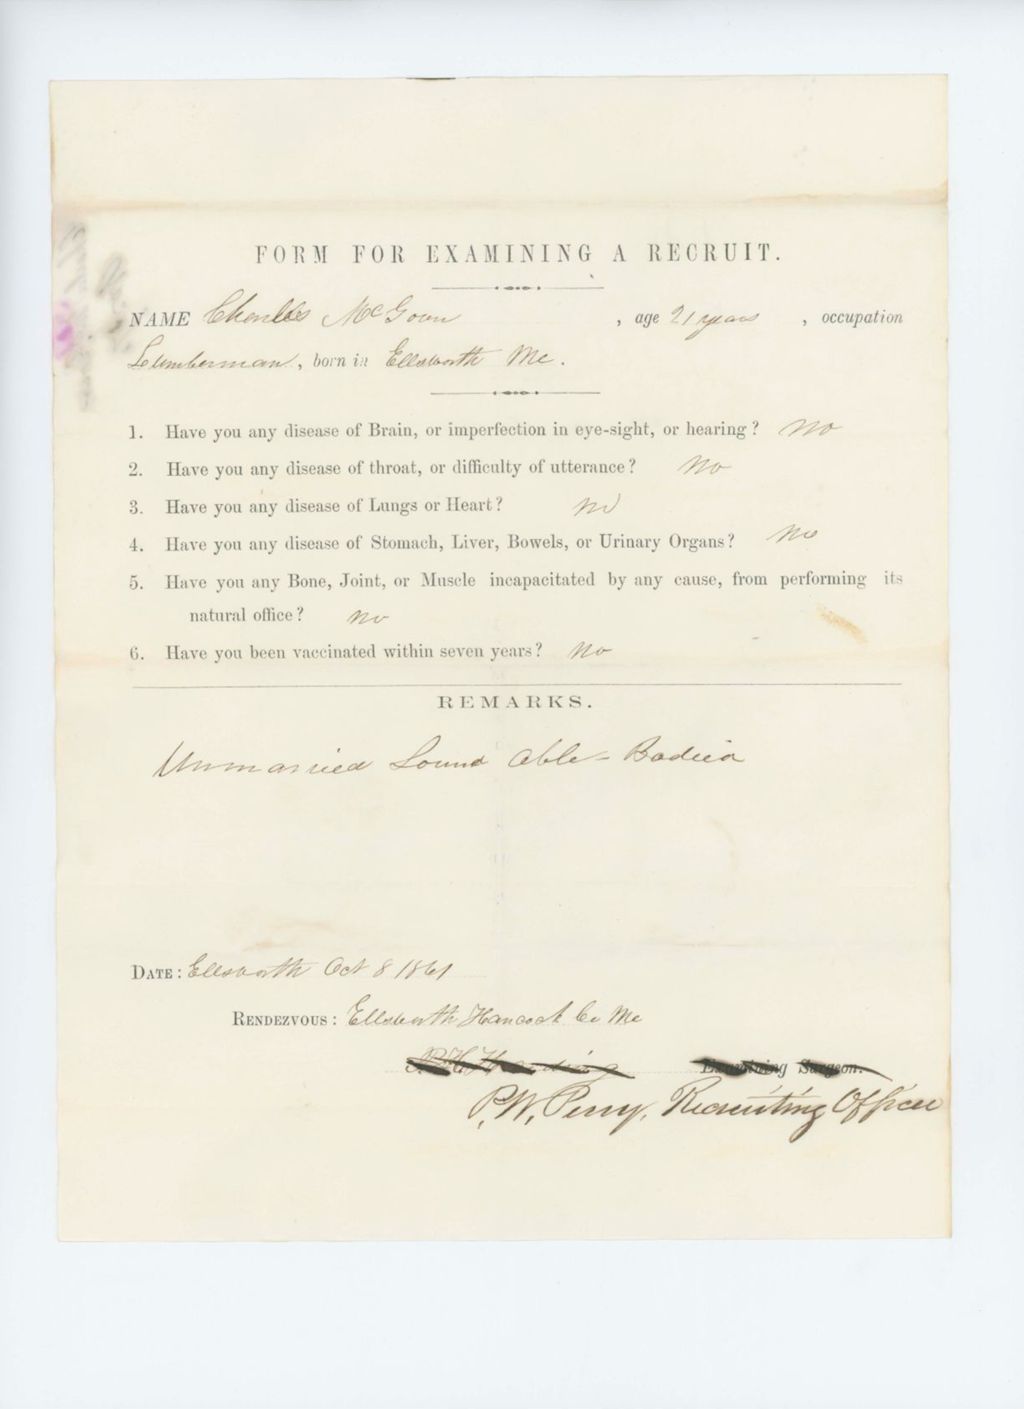 FORM FOR EXAMINING A RECRUIT.
NAME Charles McGown , age 21 years , occupation
Lumberman, born in Ellsworth Me.
1. Have you any disease of Brain, or imperfection in eye-sight, or hearing? No
2. Have you any disease of throat, or difficulty of utterance? No
3. Have you any disease of Lungs or Heart? No
4. Have you any disease of Stomach, Liver, Bowels, or Urinary Organs? No
5. Have you any Bone, Joint, or Muscle incapacitated by any cause, from performing its
natural office? No
6. Have you been vaccinated within seven years? No
REMARKS.
Unmarried Sound Able-Bodied
DATE: Ellsworth Oct 8 1861
RENDEZVOUS: Ellsworth Hancock Co Me
Harding Examining Surgeon.
P. W. Perry, Recruiting Officer